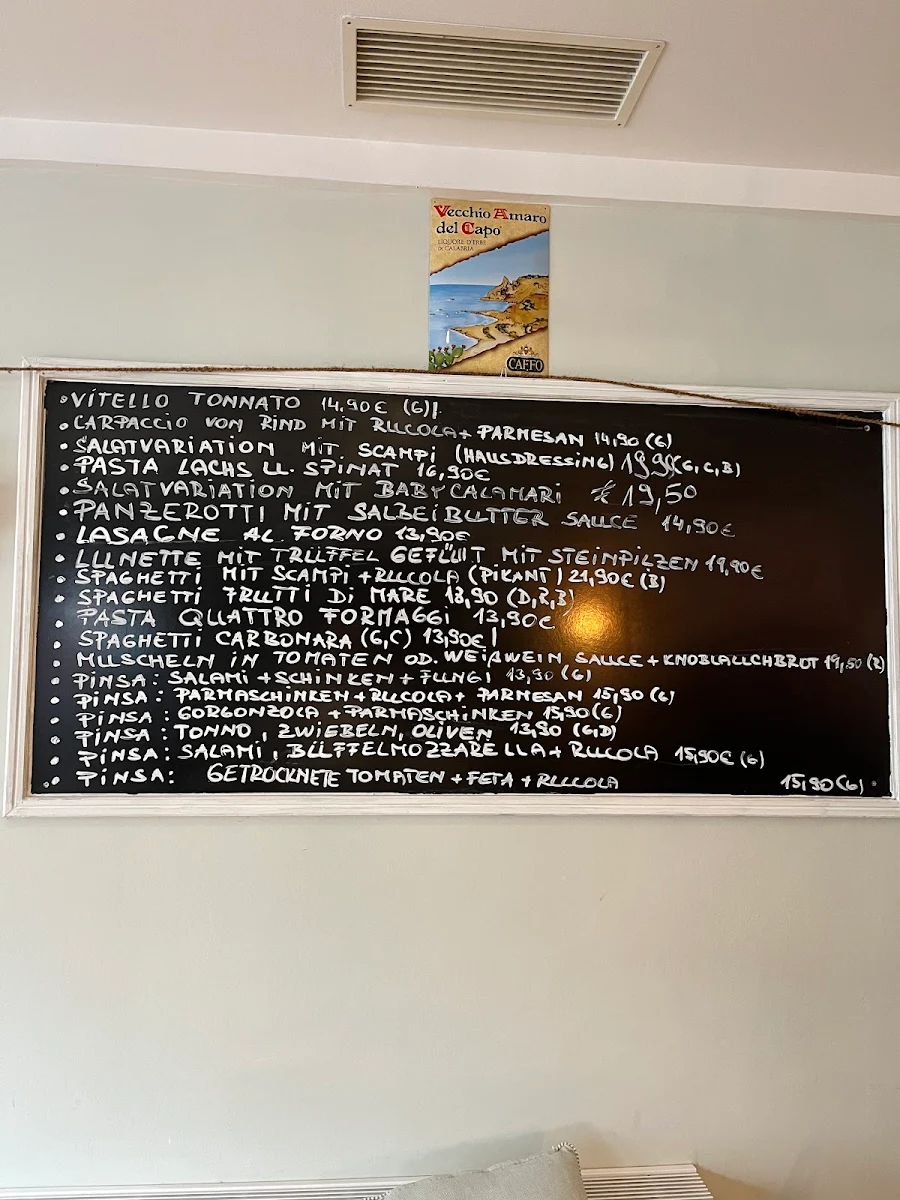 Vecchio Amaro
del Capo
LIQUORE D'ERBE
DI CALABRIA
CAFFO
• VITELLO TONNATO 14,90€ (G)
• CARPACCIO VON RIND MIT RUCOLA + PARMESAN 14,90 (G)
• SALATVARIATION MIT SCAMPI (HAUSDRESSING) 19,90 (G,C,B)
• PASTA LACHS U. SPINAT 16,90€
• SALATVARIATION MIT BABYCALAMARI € 19,50
• PANZEROTTI MIT SALBEIBUTTER SAUCE 14,90€
• LASAGNE AL FORNO 13,90€
• LUNETTE MIT TRÜFFEL GEFÜLLT MIT STEINPILZEN 19,90€
• SPAGHETTI MIT SCAMPI + RUCOLA (PIKANT) 21,90€ (B)
• SPAGHETTI FRUTTI DI MARE 18,90 (D,R,B)
• PASTA QUATTRO FORMAGGI 13,90€
• SPAGHETTI CARBONARA (G,C) 13,90€
• MUSCHELN IN TOMATEN OD. WEIßWEIN SAUCE + KNOBLAUCHBROT 19,50 (R)
• PINSA: SALAMI + SCHINKEN + FUNGI 13,90 (G)
• PINSA: PARMASCHINKEN + RUCOLA + PARMESAN 15,90 (G)
• PINSA: GORGONZOLA + PARMASCHINKEN 15,90 (G)
• PINSA: TONNO, ZWIEBELN, OLIVEN 13,90 (G,D)
• PINSA: SALAMI, BÜFFELMOZZARELLA + RUCOLA 15,90€ (G)
• PINSA: GETROCKNETE TOMATEN + FETA + RUCOLA 15,90 (G)